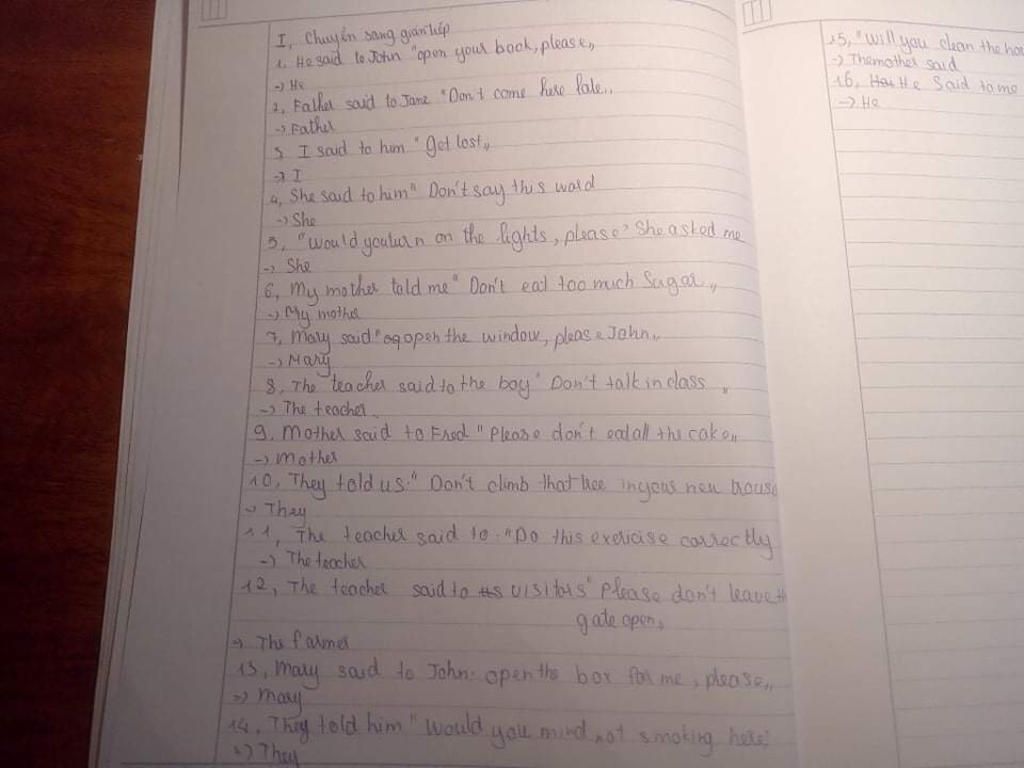 I, Chuyển sang gián tiếp
1. He said to John "open your book, please,,
-> He
2, Father said to Jane "Don't come here late,,
-> Father
3, I said to him "Get lost,,
-> I
4, She said to him" Don't say this word
-> She
5, "Would you turn on the lights, please" She asked me
-> She
6, My mother told me "Don't eat too much Sugar,,
-> My mother
7, Mary said" open the window, please John,,
-> Mary
8, The teacher said to the boy" Don't talk in class,,
-> The teacher
9. Mother said to Fred "Please don't eat all the cake,,
-> mother
10, They told us:" Don't climb that tree in your new trouse
-> They
11, The teacher said to: "Do this exercise correctly
-> The teacher
12, The teacher said to visitors" Please don't leave th
gate open,
-> The farmer
13, Mary said to John: open the box for me, please,,
-> Mary
14, They told him "Would you mind not smoking here?
-> They
15, "Will you clean the hou
-> The mother said
16, He Said to me
-> He